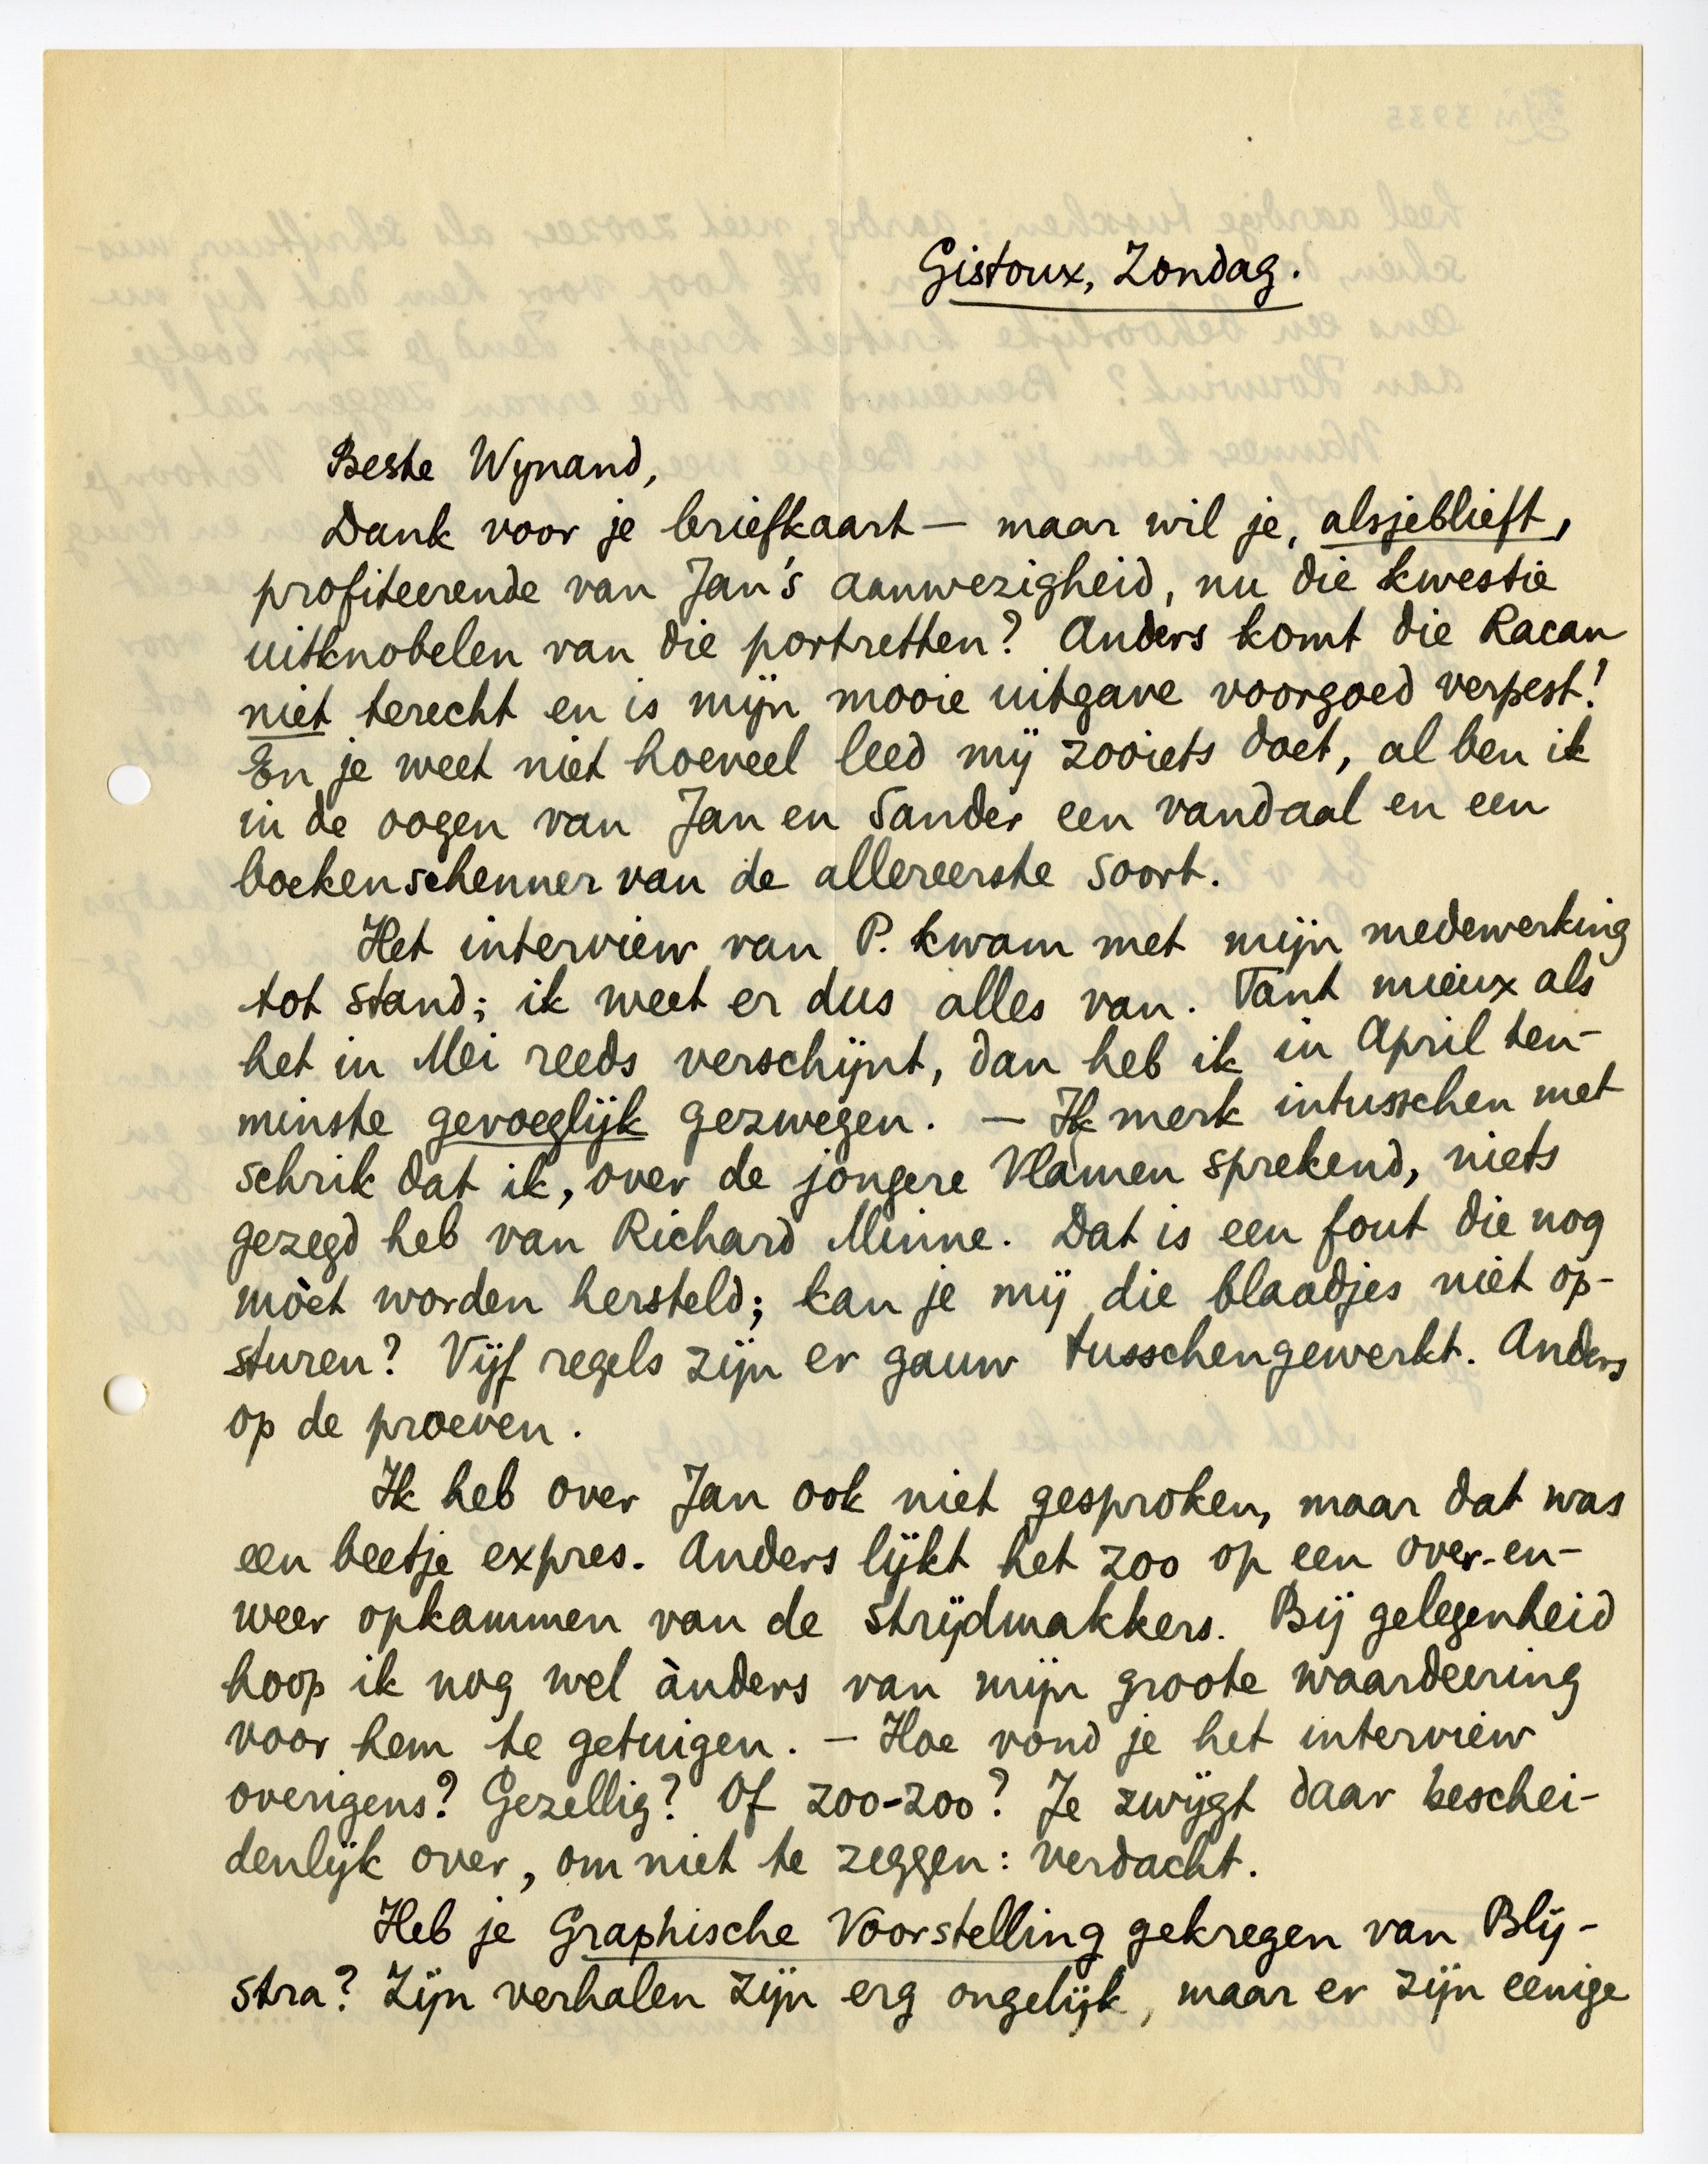 Gistoux, Zondag.
Beste Wynand,
Dank voor je briefkaart — maar wil je, alsjeblieft,
profiteerende van Jan's aanwezigheid, nu die kwestie
uitknobelen van die portretten? Anders komt die Racan
niet terecht en is mijn mooie uitgave voorgoed verpest!
En je weet niet hoeveel leed mij zooiets doet, al ben ik
in de oogen van Jan en Sander een vandaal en een
boekenschenner van de allereerste soort.
Het interview van P. kwam met mijn medewerking
tot stand; ik weet er dus alles van. Tant mieux als
het in Mei reeds verschijnt, dan heb ik in April ten-
minste gevoeglijk gezwegen. — Ik merk intusschen met
schrik dat ik, over de jongere Vlamen sprekend, niets
gezegd heb van Richard Minne. Dat is een fout die nog
mòet worden hersteld; kan je mij die blaadjes niet op-
sturen? Vijf regels zijn er gauw tusschengewerkt. Anders
op de proeven.
Ik heb over Jan ook niet gesproken, maar dat was
een beetje expres. Anders lijkt het zoo op een over-en-
weer opkammen van de strijdmakkers. Bij gelegenheid
hoop ik nog wel ànders van mijn groote waardeering
voor hem te getuigen. — Hoe vond je het interview
overigens? Gezellig? Of zoo-zoo? Je zwijgt daar beschei-
denlijk over, om niet te zeggen: verdacht.
Heb je Graphische Voorstelling gekregen van Blij-
stra? Zijn verhalen zijn erg ongelijk, maar er zijn eenige